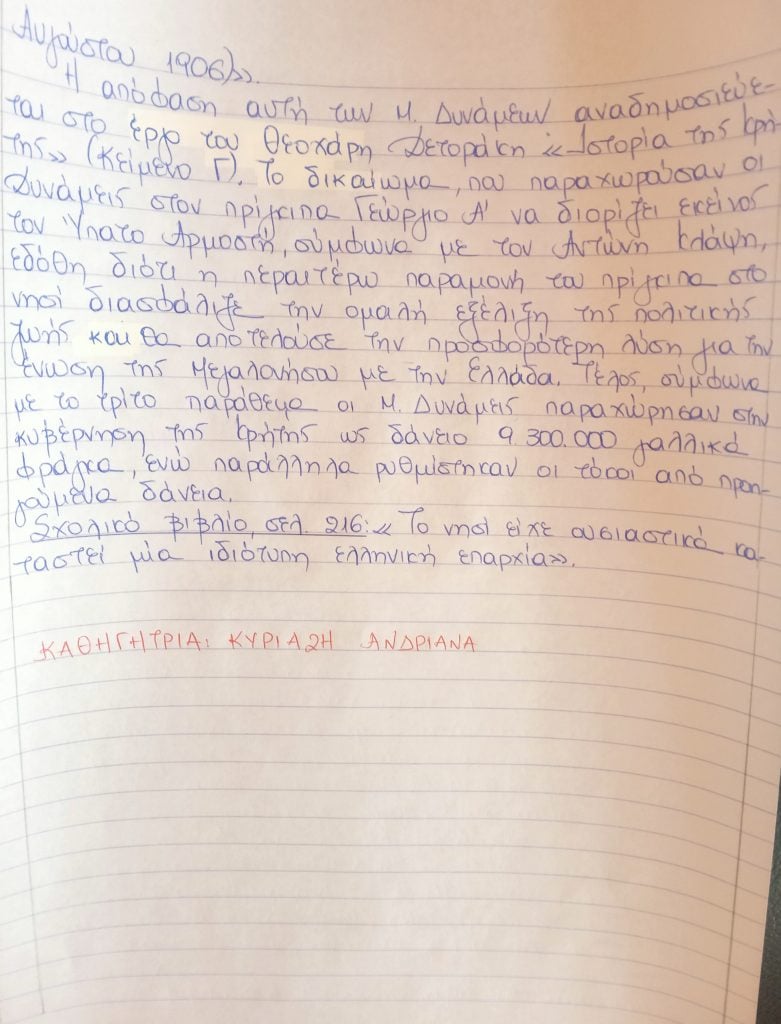 Αυγούστου 1906».
Η απόφαση αυτή των Μ. Δυνάμεων αναδημοσιεύε-
ται στο έργο του Θεοχάρη Δετοράκη «Ιστορία της Κρή-
της» (Κείμενο Γ). Το δικαίωμα, που παραχωρούσαν οι
Δυνάμεις στον πρίγκιπα Γεώργιο Α' να διορίζει εκείνος
τον Ύπατο Αρμοστή, σύμφωνα με τον Αντώνη Κλάψη,
εδόθη διότι η περαιτέρω παραμονή του πρίγκιπα στο
νησί διασφάλιζε την ομαλή εξέλιξη της πολιτικής
ζωής και θα αποτελούσε την προσφορότερη λύση για την
ένωση της Μεγαλονήσου με την Ελλάδα. Τέλος, σύμφωνα
με το τρίτο παράθεμα οι Μ. Δυνάμεις παραχώρησαν στην
κυβέρνηση της Κρήτης ως δάνειο 9.300.000 γαλλικά
φράγκα, ενώ παράλληλα ρυθμίστηκαν οι τόκοι από προη-
γούμενα δάνεια.
Σχολικό βιβλίο, σελ. 216: «Το νησί είχε ουσιαστικά κα-
ταστεί μία ιδιότυπη ελληνική επαρχία».
ΚΑΘΗΓΗΤΡΙΑ: ΚΥΡΙΑΖΗ ΑΝΔΡΙΑΝΑ